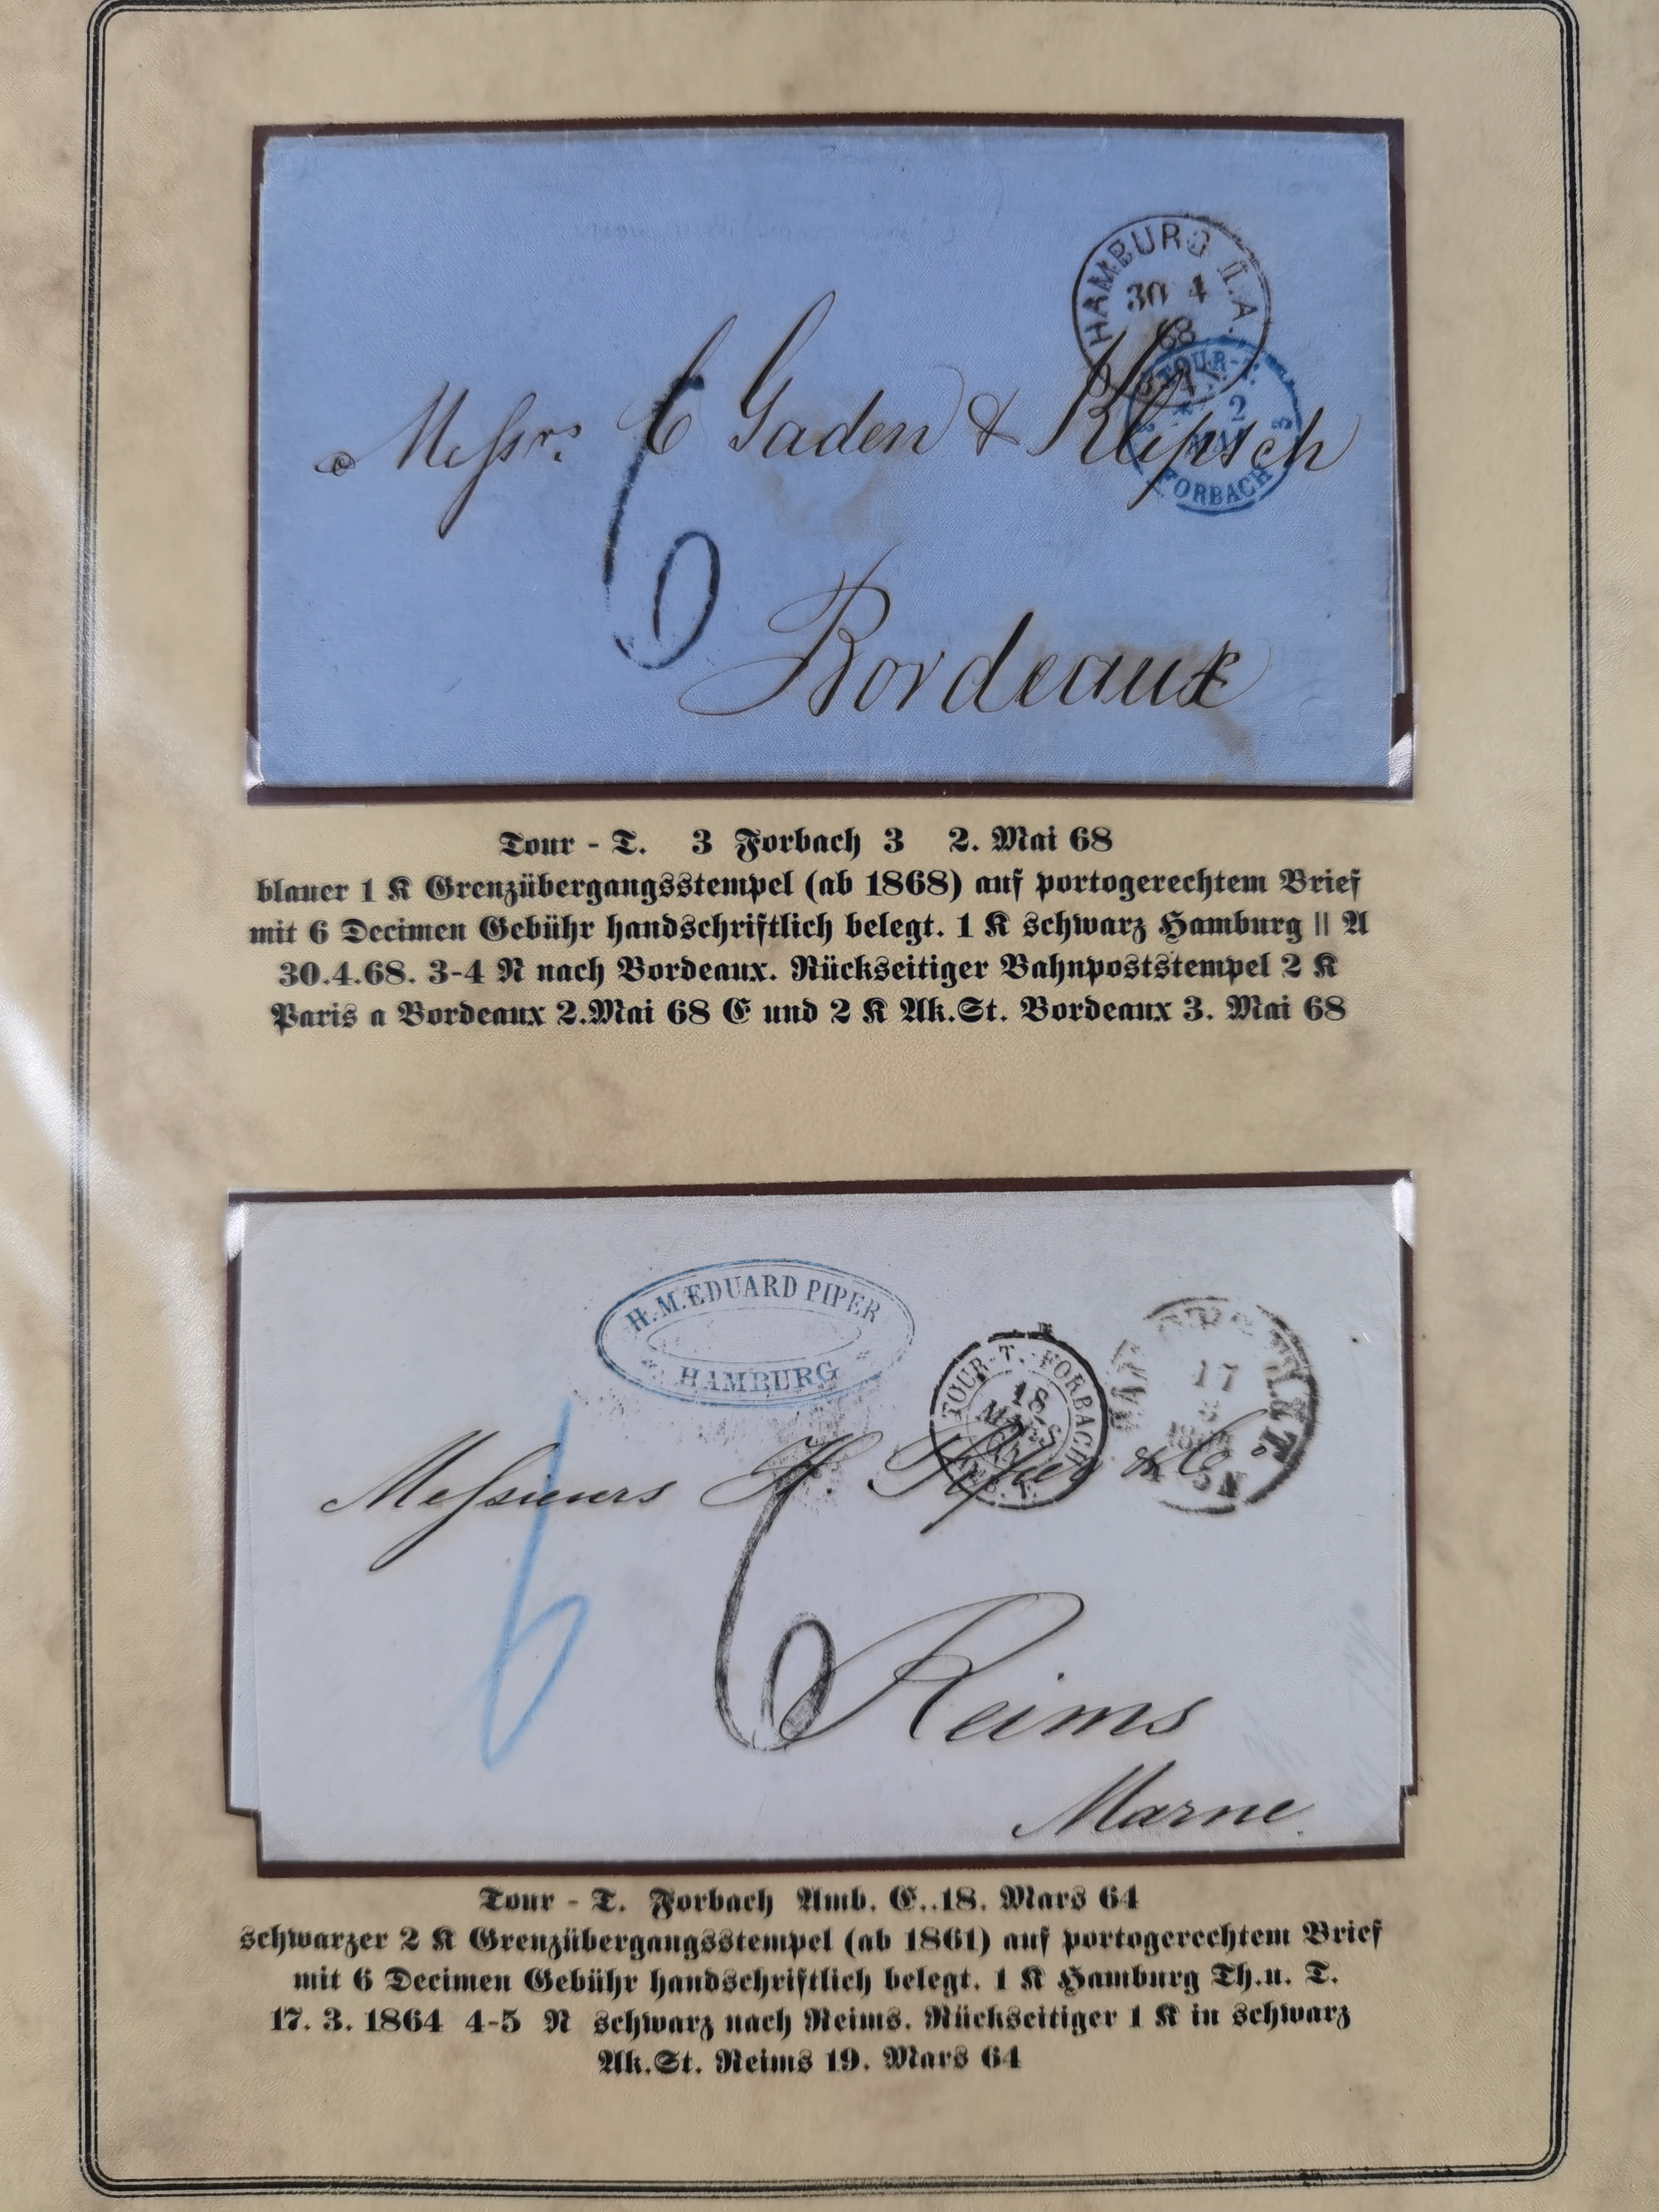 HAMBURG II.A.
30 4
68
TOUR-T.
3 2 3
MAI
FORBACH
Messrs. Gaden & Klipsch
6
Bordeaux
Tour - T. 3 Forbach 3 2. Mai 68
blauer 1 K Grenzübergangsstempel (ab 1868) auf portogerechtem Brief
mit 6 Decimen Gebühr handschriftlich belegt. 1 K schwarz Hamburg || A
30.4.68. 3-4 N nach Bordeaux. Rückseitiger Bahnpoststempel 2 K
Paris a Bordeaux 2.Mai 68 E und 2 K Ak.St. Bordeaux 3. Mai 68
H.M.EDUARD PIPER
HAMBURG
TOUR-T. FORBACH
18
MARS
64
17
3
Messieurs H. & Co
6
6
Reims
Marne.
Tour - T. Forbach Amb. E..18. Mars 64
schwarzer 2 K Grenzübergangsstempel (ab 1861) auf portogerechtem Brief
mit 6 Decimen Gebühr handschriftlich belegt. 1 K Hamburg Th.u. T.
17. 3. 1864 4-5 N schwarz nach Reims. Rückseitiger 1 K in schwarz
Ak.St. Reims 19. Mars 64